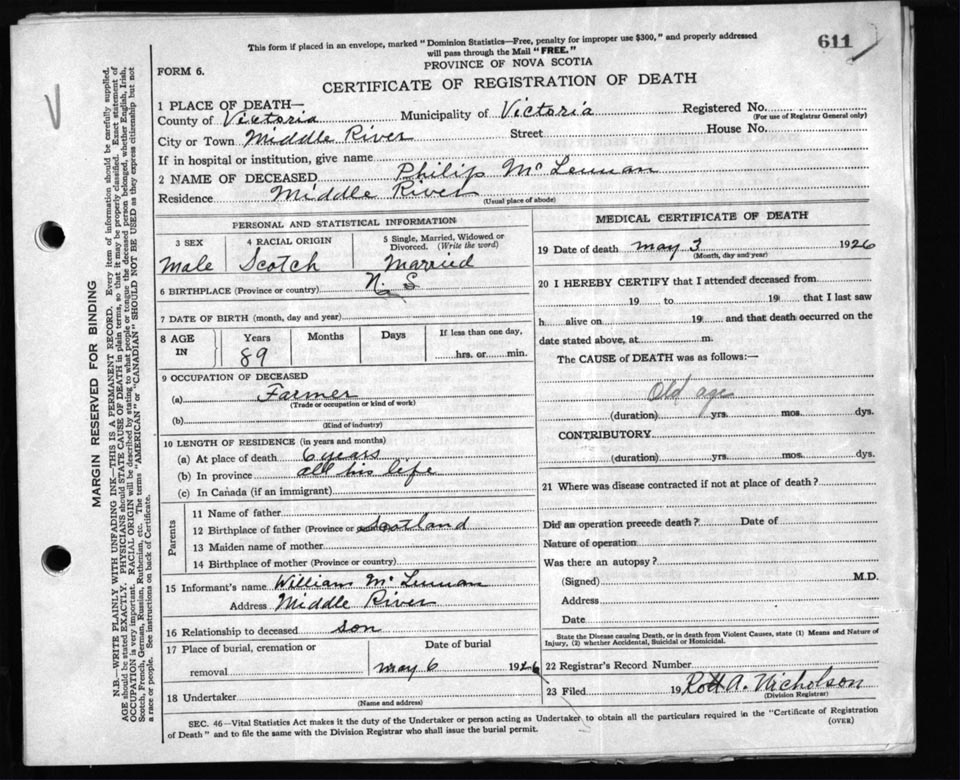 This form if placed in an envelope, marked "Dominion Statistics—Free, penalty for improper use $300," and properly addressed
will pass through the Mail "FREE."
611
PROVINCE OF NOVA SCOTIA
FORM 6.
CERTIFICATE OF REGISTRATION OF DEATH
1 PLACE OF DEATH—
County of Victoria Municipality of Victoria Registered No.
(For use of Registrar General only)
City or Town Middle River Street House No.
If in hospital or institution, give name
2 NAME OF DECEASED Philip Mc Lennan
Residence Middle River
(Usual place of abode)
PERSONAL AND STATISTICAL INFORMATION
3 SEX 4 RACIAL ORIGIN 5 Single, Married, Widowed or
Divorced. (Write the word)
Male Scotch Married
6 BIRTHPLACE (Province or country) N. S
7 DATE OF BIRTH (month, day and year)
8 AGE IN Years Months Days If less than one day,
89 hrs. or min.
9 OCCUPATION OF DECEASED
(a) Farmer
(Trade or occupation or kind of work)
(b)
(Kind of industry)
10 LENGTH OF RESIDENCE (in years and months)
(a) At place of death 6 years
(b) In province all his life
(c) In Canada (if an immigrant)
Parents
11 Name of father
12 Birthplace of father (Province or Scotland
13 Maiden name of mother
14 Birthplace of mother (Province or country)
15 Informant's name William Mc Lennan
Address Middle River
16 Relationship to deceased son
17 Place of burial, cremation or Date of burial
removal May 6 1926
18 Undertaker
(Name and address)
MEDICAL CERTIFICATE OF DEATH
19 Date of death May 3 1926
(Month, day and year)
20 I HEREBY CERTIFY that I attended deceased from
19 to 19 that I last saw
h alive on 19 and that death occurred on the
date stated above, at m.
The CAUSE of DEATH was as follows:—
Old age
(duration) yrs. mos. dys.
CONTRIBUTORY
(duration) yrs. mos. dys.
21 Where was disease contracted if not at place of death?
Did an operation precede death? Date of
Nature of operation
Was there an autopsy?
(Signed) M.D.
Address
Date
State the Disease causing Death, or in death from Violent Causes, state (1) Means and Nature of
Injury, (2) whether Accidental, Suicidal or Homicidal.
22 Registrar's Record Number
23 Filed 19 A. Nicholson
(Division Registrar)
SEC. 46—Vital Statistics Act makes it the duty of the Undertaker or person acting as Undertaker to obtain all the particulars required in the "Certificate of Registration
of Death" and to file the same with the Division Registrar who shall issue the burial permit.
(OVER)
MARGIN RESERVED FOR BINDING
N.B.—WRITE PLAINLY WITH UNFADING INK—THIS IS A PERMANENT RECORD. Every item of information should be carefully supplied.
AGE should be stated EXACTLY. PHYSICIANS should STATE CAUSE OF DEATH in plain terms, so that it may be properly classified. Exact statement of
OCCUPATION is very important. RACIAL ORIGIN will be described by stating to what people or tongue the deceased person belonged, whether English, Irish,
Scotch, French, German, Russian, Ruthenian, etc. The terms "AMERICAN" or "CANADIAN" SHOULD NOT BE USED as they express citizenship but not
a race or people. See instructions on back of Certificate.